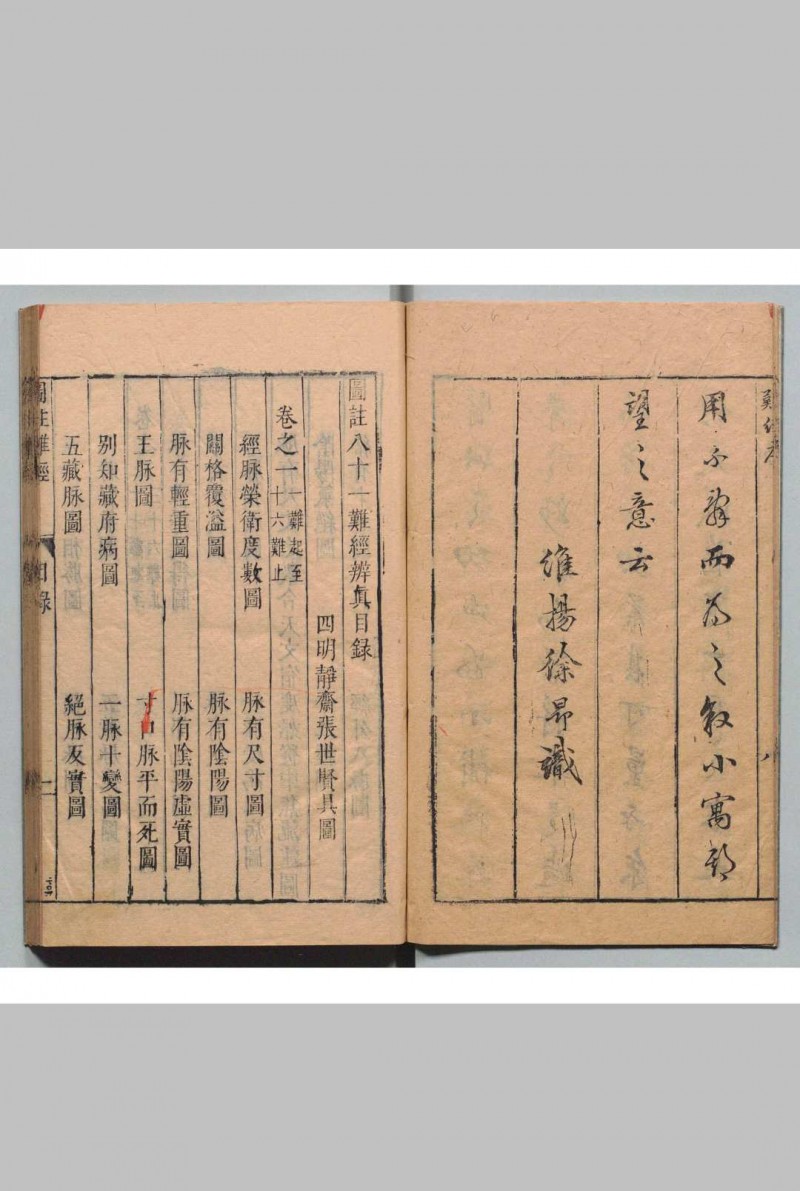 用不辭而為之敘小寓郭
望之意云
維揚徐昂識
圖註八十一難經辨真目錄
四明靜齋張世賢具圖
卷之一 一難起至十六難止
經脉榮衛度數圖 脉有尺寸圖
關格覆溢圖 脉有陰陽圖
脉有輕重圖 脉有陰陽虛實圖
王脉圖 寸口脉平而死圖
別知藏府病圖 一脉十變圖
五藏脉圖 絕脉及實圖
圖註難經 目錄 一